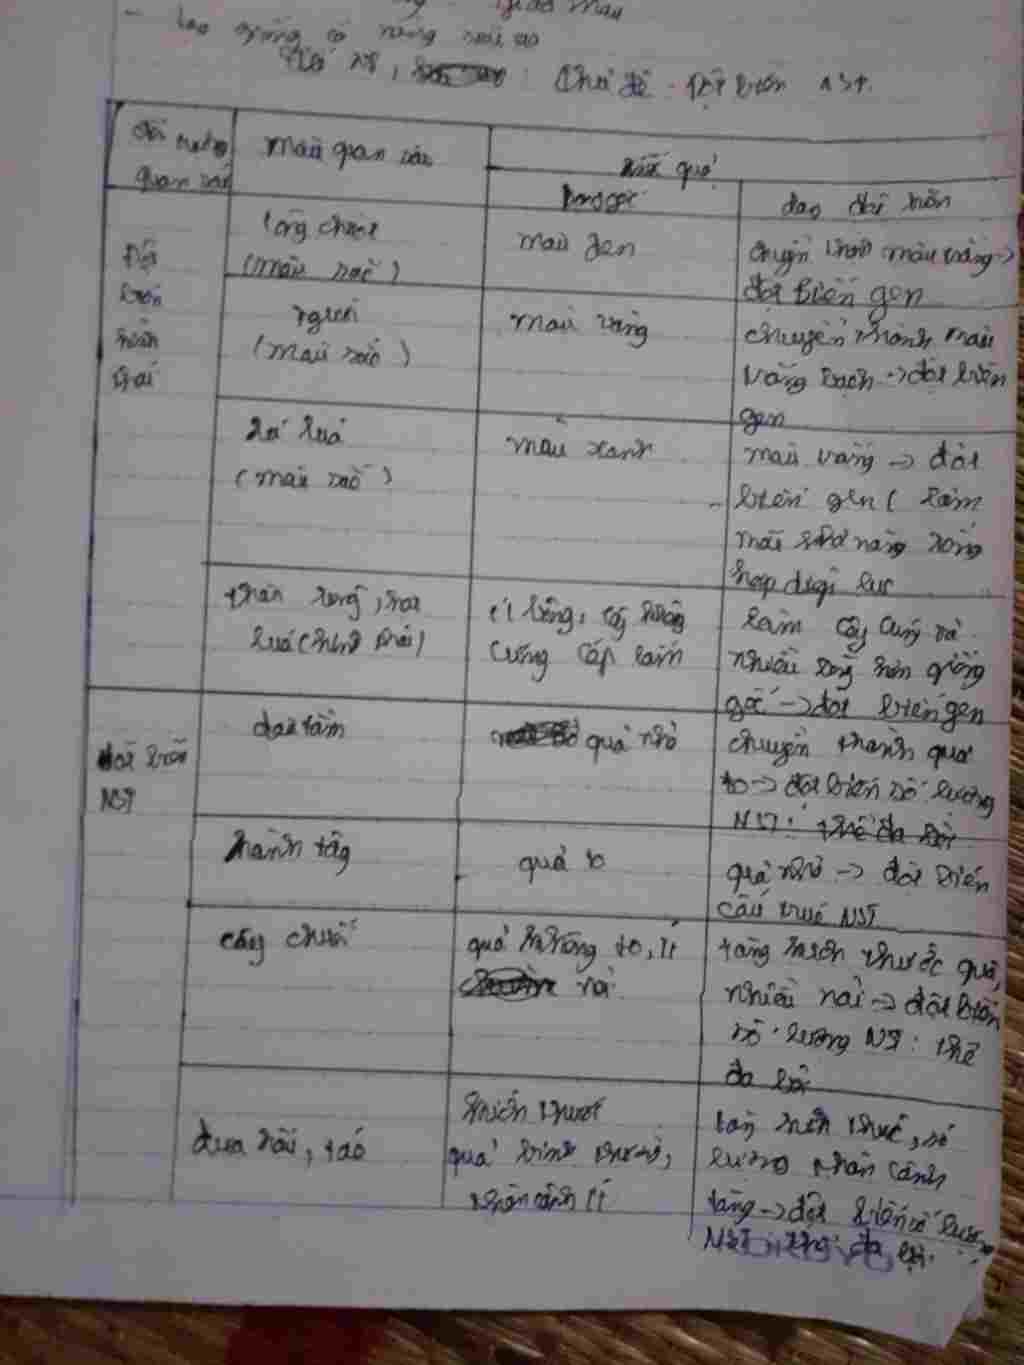 giao màu
- lao giống có năng suất cao
Chủ đề: Đột biến NST.
Đối tượng
quan sát
Mẫu quan sát
Kết quả
Dạng gốc
dạng đột biến
Đột
biến
hình
thái
lông chuột
(màu sắc)
màu đen
chuyển thành màu trắng ->
đột biến gen
người
(màu sắc)
màu vàng
chuyển thành màu
trắng bạch -> đột biến
gen
Lá lúa
(màu sắc)
màu xanh
màu vàng -> đột
biến gen ( làm
mất khả năng tổng
hợp diệp lục
thân, bông, hạt
lúa (hình thái)
ít bông, cây không
cứng cáp lắm
làm cây cứng và
nhiều bông hơn giống
gốc -> đột biến gen
đột biến
NST
dâu tằm
quả nhỏ
chuyển thành quả
to -> đột biến số lượng
NST: thể đa bội
hành tây
quả to
quả nhỏ -> đột biến
cấu trúc NST
cây chuối
quả không to, ít
nải
tăng kích thước quả,
nhiều nải -> đột biến
số lượng NST: thể
đa bội
dưa hấu, táo
kích thước
quả bình thường,
phân cành ít
tăng kích thước, số
lượng phân cành
tăng -> đột biến số lượng
NST: thể đa bội.